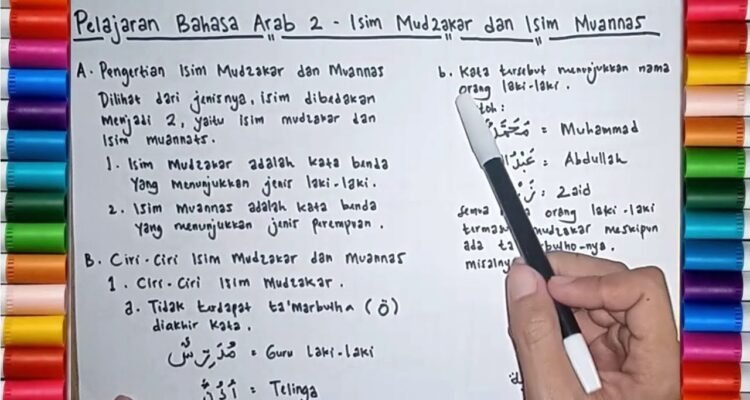 Pelajaran Bahasa Arab 2 - Isim Mudzakar dan Isim Muannas
A. Pengertian Isim Mudzakar dan Muannas
Dilihat dari jenisnya, isim dibedakan
menjadi 2, yaitu isim mudzakar dan
isim muannats.
1. Isim Mudzakar adalah kata benda
yang menunjukkan jenis laki-laki.
2. Isim Muannas adalah kata benda
yang menunjukkan jenis perempuan.
B. Ciri-Ciri Isim Mudzakar dan Muannas
1. Ciri-Ciri Isim Mudzakar.
a. Tidak terdapat ta'marbutha (ة)
diakhir kata.
مُدَرِّسٌ = Guru laki-laki
أُذُنٌ = Telinga
b. Kata tersebut menunjukkan nama
orang laki-laki.
toh:
مُحَمَّدٌ = Muhammad
= Abdullah
: Zaid
semua orang laki-laki
mudzakar meskipun
ada -nya.
misalny